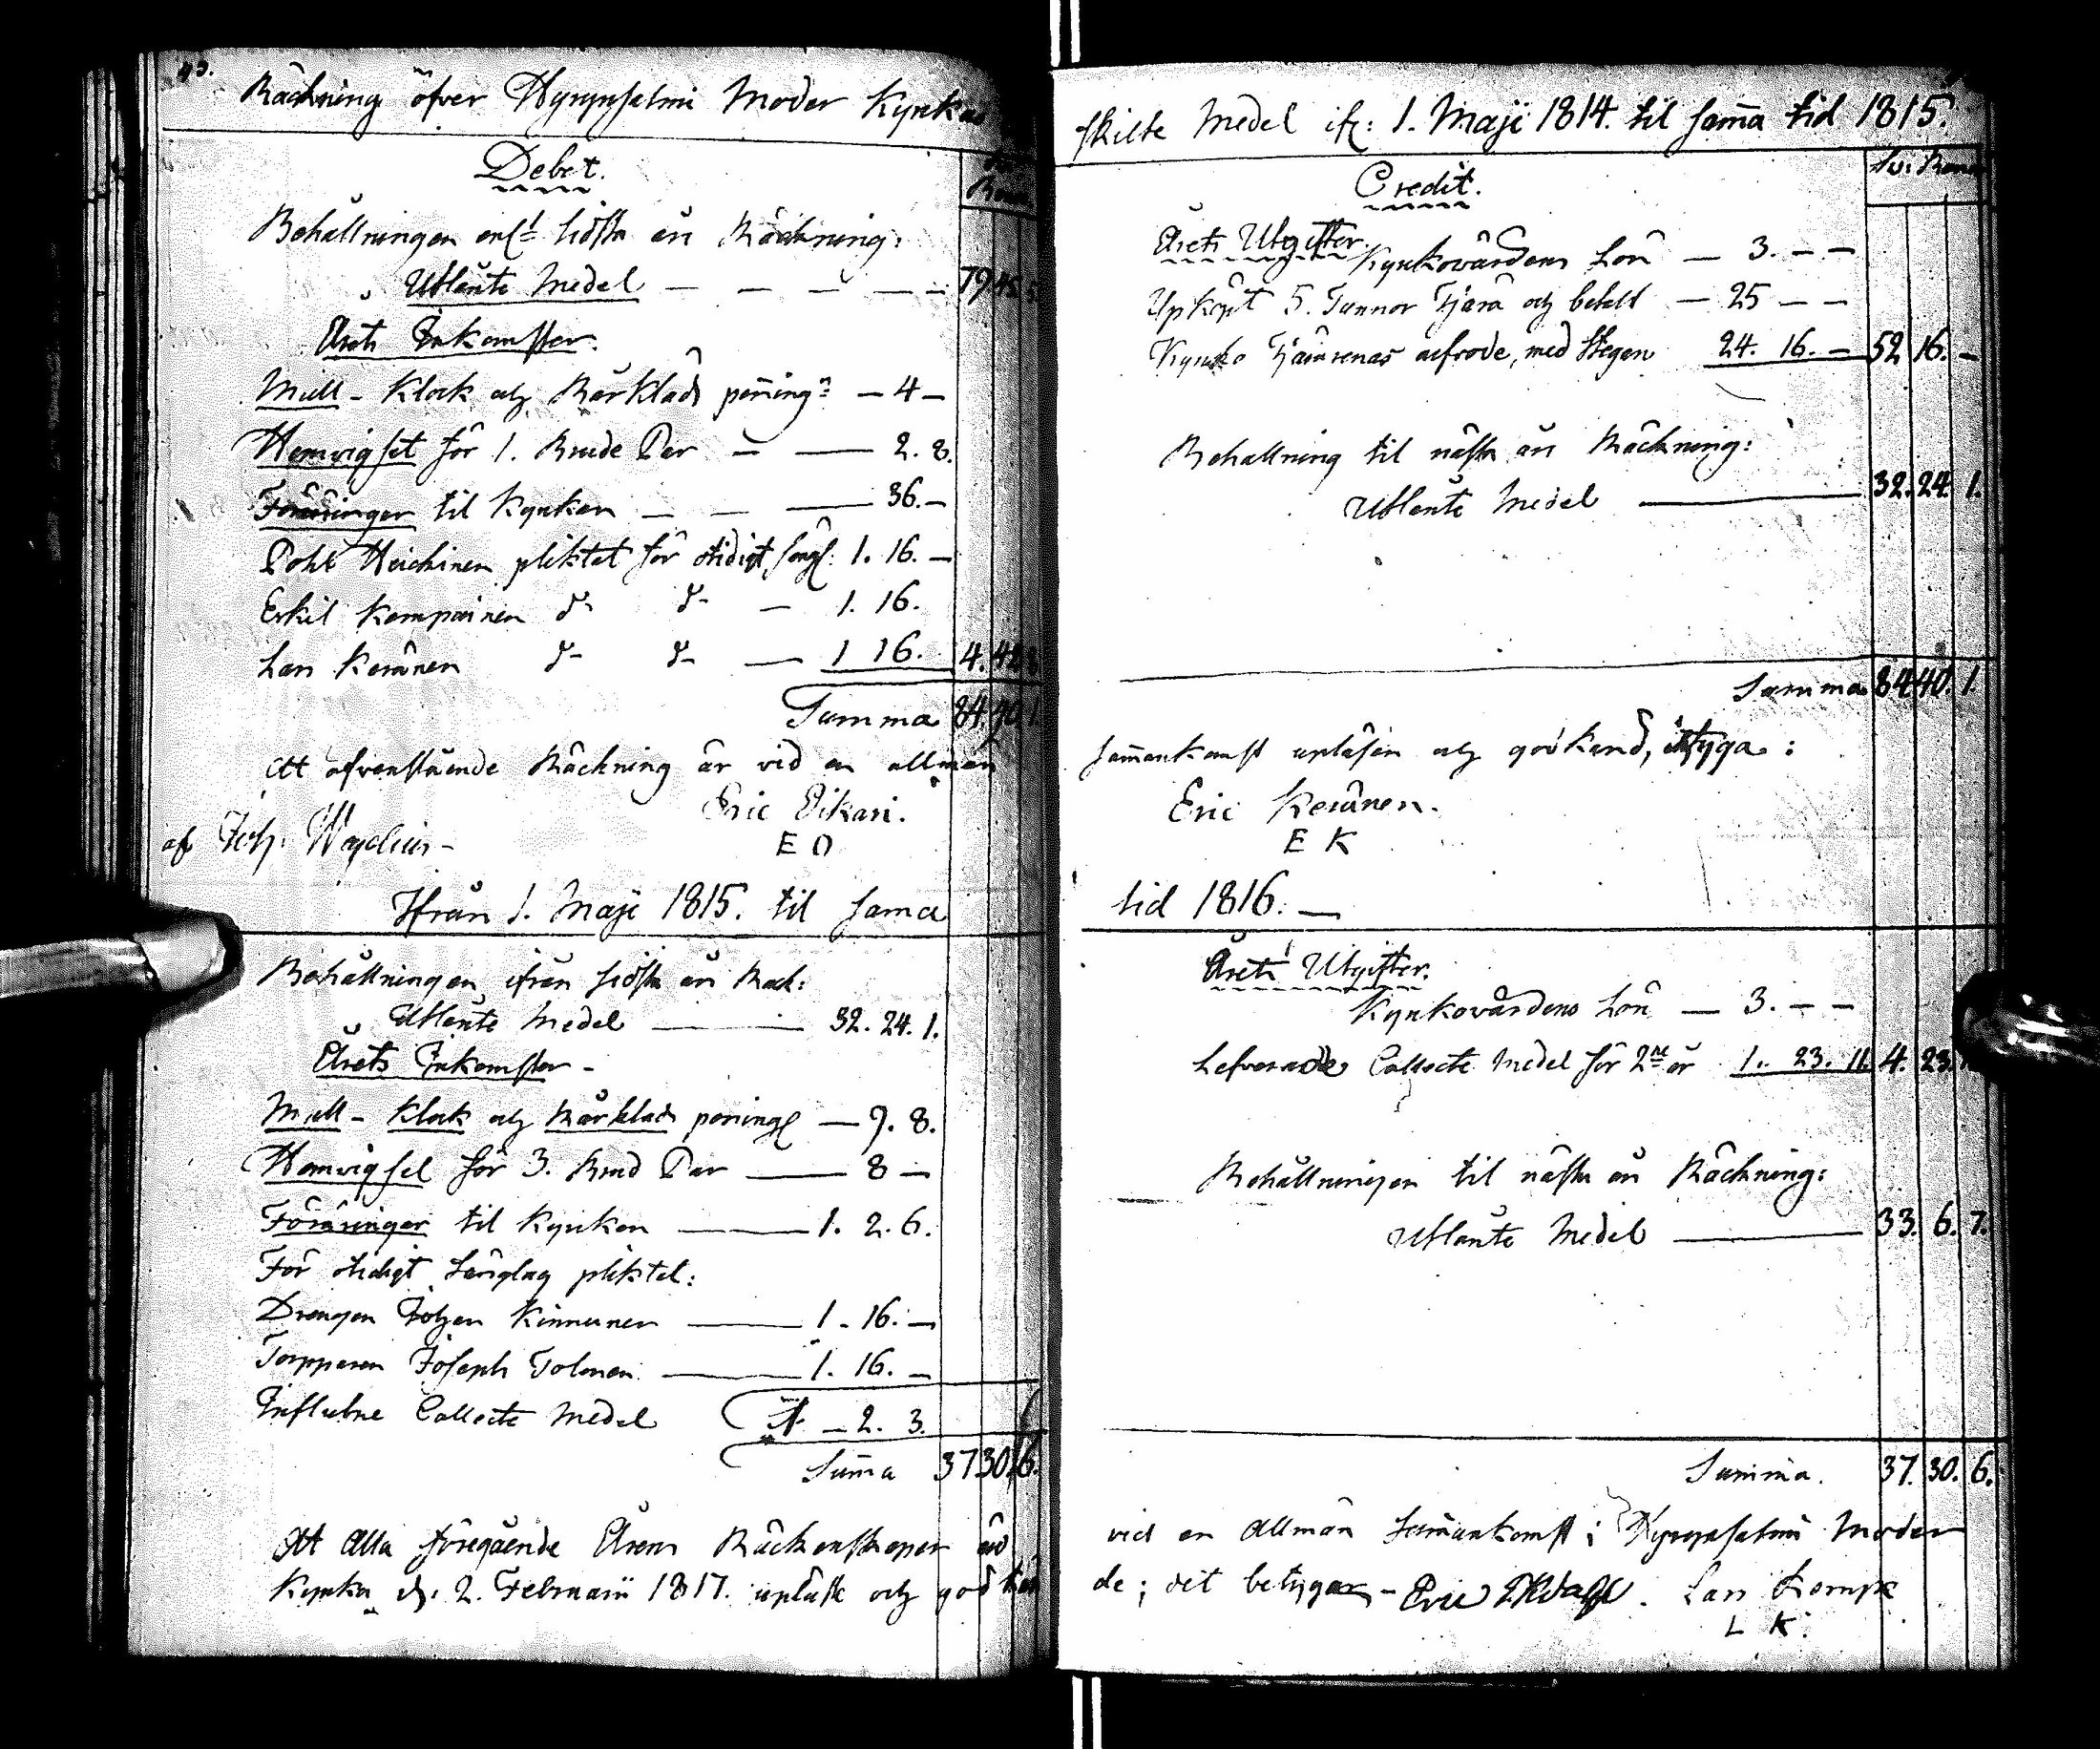 Räckning öfver Hyrynsalmi Moder Kyrkas
Debet.
Behållningen enl:t sidsta års Räckning:
Utlånte Medel — — — — — 79 45 5
Årets Inkomster.
Mull- Klock och Bårklads penning:r — 4 —
Hemvigsel för 1. Brude Par — — 2. 8.
Föräringar til Kyrkan — — — 36. —
Pohl Heickinen pliktat för otidigt sängl: 1. 16. —
Erkil Kompainen d:o d:o — 1. 16.
Lars Keränen d:o d:o — 1 16. 4. 42 8
Summa 84. 40 1
Att ofvanstående Räckning är vid en allmän
Eric Oikari.
af Joh. Wegelius — E O
Ifrån 1. Maji 1815. til sama
Behållningen ifrån sidsta års Räck:
Utlånte Medel — — 32. 24. 1.
Årets Inkomster —
Mull- Klock och Bårklads pening — 9. 8.
Hemvigsel för 3. Brud Par — 8 —
Föräringar til Kyrkan — 1. 2. 6.
För otidigt sänglag pliktat:
Drengen Johan Kinnunen — 1. 16. —
Torpparen Joseph Tolonen — 1. 16. —
Influtne Collecte Medel — 2. 3.
Suma 37 30 6.
Att Alla föregående Årens Räckenskaper äro
Kyrka d. 2. Februarii 1817. upläste och godkän
skilte Medel ifr: 1. Maji 1814. til sama tid 1815.
Credit.
Årets Utgifter.
Kyrkovärdens Lön — 3. — —
Upköpt 5. Tunnor Tjära och betalt — 25 — —
Kyrko Tjänrenas med Stegen 24. 16. — 52 16. —
Behållning til nästa års Räckning:
Utlånte Medel — 32. 24. 1.
Summa 84 40. 1.
sammankomst upläsen och godkend, intyga:
Eric Keränen.
E K
tid 1816. —
Årets Utgifter.
Kyrkovärdens Lön — 3. — —
Lefvererade Collecte Medel för 2:ne år 1. 23. 11. 4. 23.
Behållningen til nästa års Räckning:
Utlånte Medel — 33. 6. 7.
Summa. 37. 30. 6.
vid en Allmän Samankomst i Hyrynsalmi Moder
de; det betygar — Eric Lars Komp
L K.